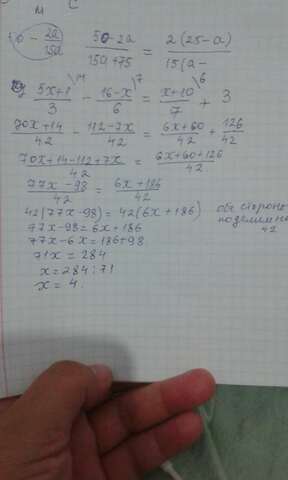 м с
2а/15а 50-2а/15а+75 = 2(25-а)/15(а-
5x+1/3 \14 - 16-x/6 \7 = x+10/7 \6 + 3
70x+14/42 - 112-7x/42 = 6x+60/42 + 126/42
70x+14-112+7x/42 = 6x+60+126/42
77x-98/42 = 6x+186/42
42(77x-98) = 42(6x+186) обе стороны поделим на 42
77x-98 = 6x+186
77x-6x = 186+98
71x = 284
x = 284:71
x = 4.